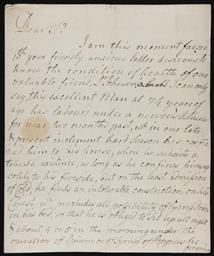 Dear Sr.
I am this moment favored
with your friendly anxious letter desirous to
know the condition of health of our
valuable friend, I can only
say, this excellent Man at 74 years of
age has labour'd under a nervous
for near two months past, in our late
& present inclement hard Season his confin-
ed him to his house, where he sustains a
tolerable existence, as long as he confines himself
solely to his fireside, but on the least admission
of Cold, he finds an intolerable constriction on his
Chest, wch. precludes all possibility of lying down
in his bed, or that he is obliged to sit up all night
& about 4 or 5 in the morning under the
operation of Opium or Syrup of Poppies he